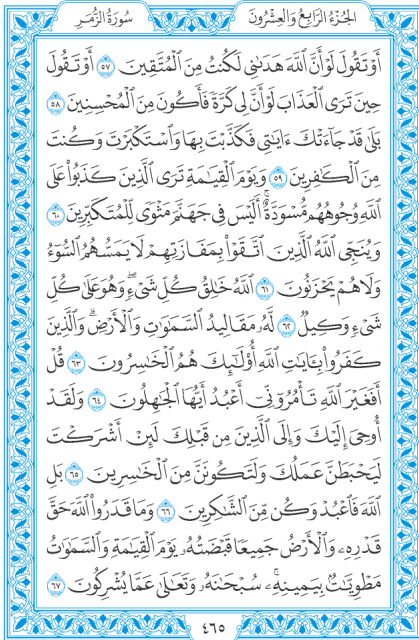 الجُزْءُ الرَّابِعُ وَالعِشْرُونَ سُورَةُ الزُّمَرِ
أَوْ تَقُولَ لَوْ أَنَّ ٱللَّهَ هَدَىٰنِى لَكُنتُ مِنَ ٱلْمُتَّقِينَ ٥٧ أَوْ تَقُولَ
حِينَ تَرَى ٱلْعَذَابَ لَوْ أَنَّ لِى كَرَّةً فَأَكُونَ مِنَ ٱلْمُحْسِنِينَ ٥٨
بَلَىٰ قَدْ جَآءَتْكَ ءَايَٰتِى فَكَذَّبْتَ بِهَا وَٱسْتَكْبَرْتَ وَكُنتَ
مِنَ ٱلْكَٰفِرِينَ ٥٩ وَيَوْمَ ٱلْقِيَٰمَةِ تَرَى ٱلَّذِينَ كَذَبُوا۟ عَلَى
ٱللَّهِ وُجُوهُهُم مُّسْوَدَّةٌ ۚ أَلَيْسَ فِى جَهَنَّمَ مَثْوًى لِّلْمُتَكَبِّرِينَ ٦٠
وَيُنَجِّى ٱللَّهُ ٱلَّذِينَ ٱتَّقَوْا۟ بِمَفَازَتِهِمْ لَا يَمَسُّهُمُ ٱلسُّوٓءُ
وَلَا هُمْ يَحْزَنُونَ ٦١ ٱللَّهُ خَٰلِقُ كُلِّ شَىْءٍ ۖ وَهُوَ عَلَىٰ كُلِّ
شَىْءٍ وَكِيلٌ ٦٢ لَّهُۥ مَقَالِيدُ ٱلسَّمَٰوَٰتِ وَٱلْأَرْضِ ۗ وَٱلَّذِينَ
كَفَرُوا۟ بِـَٔايَٰتِ ٱللَّهِ أُو۟لَٰٓئِكَ هُمُ ٱلْخَٰسِرُونَ ٦٣ قُلْ
أَفَغَيْرَ ٱللَّهِ تَأْمُرُوٓنِّىٓ أَعْبُدُ أَيُّهَا ٱلْجَٰهِلُونَ ٦٤ وَلَقَدْ
أُوحِىَ إِلَيْكَ وَإِلَى ٱلَّذِينَ مِن قَبْلِكَ لَئِنْ أَشْرَكْتَ
لَيَحْبَطَنَّ عَمَلُكَ وَلَتَكُونَنَّ مِنَ ٱلْخَٰسِرِينَ ٦٥ بَلِ
ٱللَّهَ فَٱعْبُدْ وَكُن مِّنَ ٱلشَّٰكِرِينَ ٦٦ وَمَا قَدَرُوا۟ ٱللَّهَ حَقَّ
قَدْرِهِۦ وَٱلْأَرْضُ جَمِيعًا قَبْضَتُهُۥ يَوْمَ ٱلْقِيَٰمَةِ وَٱلسَّمَٰوَٰتُ
مَطْوِيَّٰتٌۢ بِيَمِينِهِۦ ۚ سُبْحَٰنَهُۥ وَتَعَٰلَىٰ عَمَّا يُشْرِكُونَ ٦٧
٤٦٥